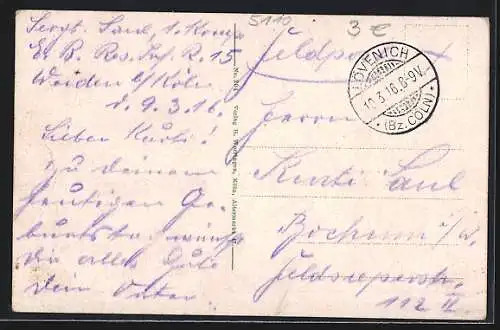 Sergt. Saul, 1. Komp.
E. B. Res. Inf. R. 15
Weiden b/Köln
d. 9.3.16.
Lieber Kurti!
Zu deinem
heutigen Ge-
burtstag wünsche
dir alles Gute
Dein Vater.
5110
3 €
Feldpost
LÖVENICH
10.3.16.8-9V.
* (Bz. CÖLN) *
Herrn
Kurti Saul
Bochum i/W.
112 II